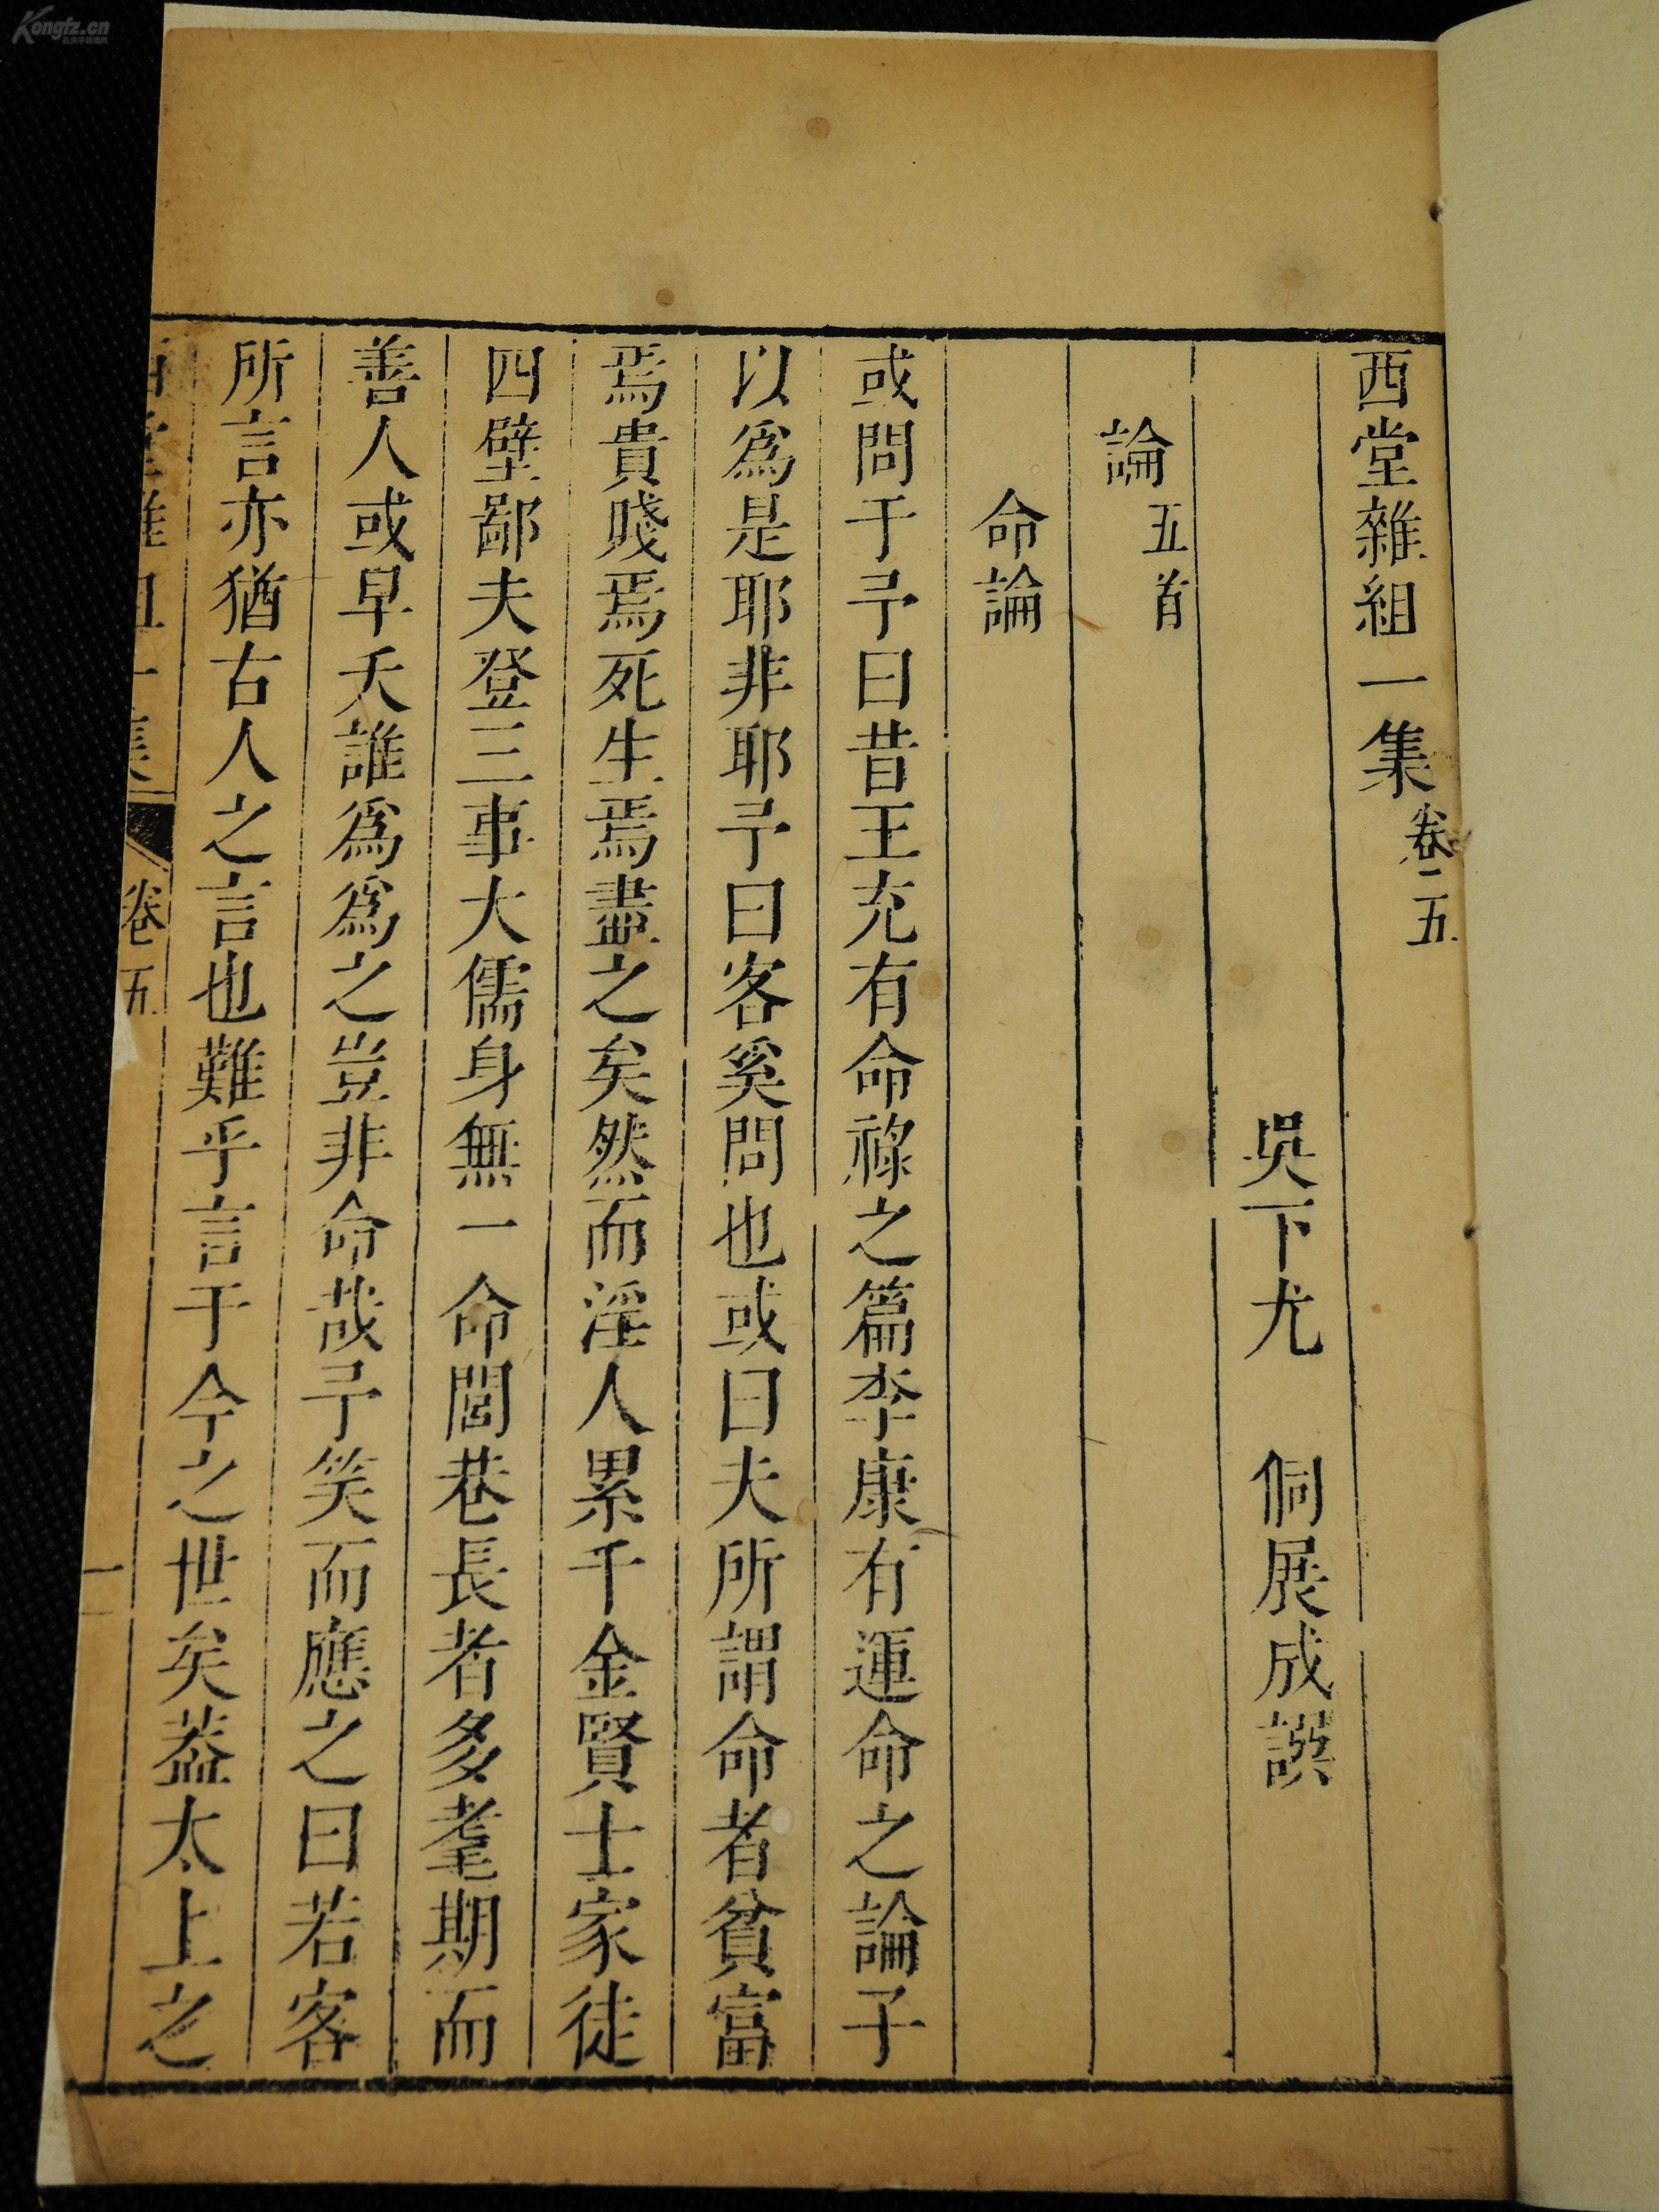 西堂雜組一集卷五
吳下尤　侗展成譔
論五首
命論
或問于予曰昔王充有命祿之篇李康有運命之論子
以爲是耶非耶予曰客奚問也或曰夫所謂命者貧富
焉貴賤焉死生焉盡之矣然而淫人累千金賢士家徒
四壁鄙夫登三事大儒身無一命閭巷長者多耄期而
善人或早夭誰爲爲之豈非命哉予笑而應之曰若客
所言亦猶古人之言也難乎言于今之世矣葢太上之
西堂雜組一集　卷五　一
Kongfz.cn